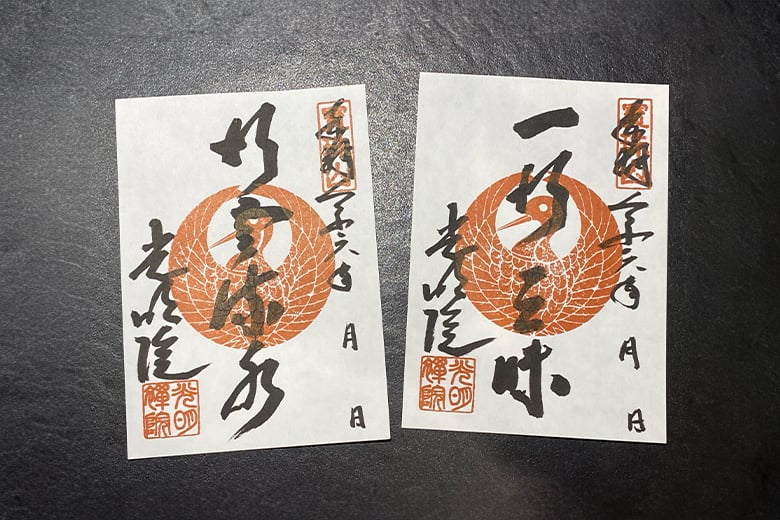 奉拝
令和六年 月 日
行雲流水
光明院
光明
禪院
奉拝
令和六年 月 日
一行三昧
光明院
光明
禪院